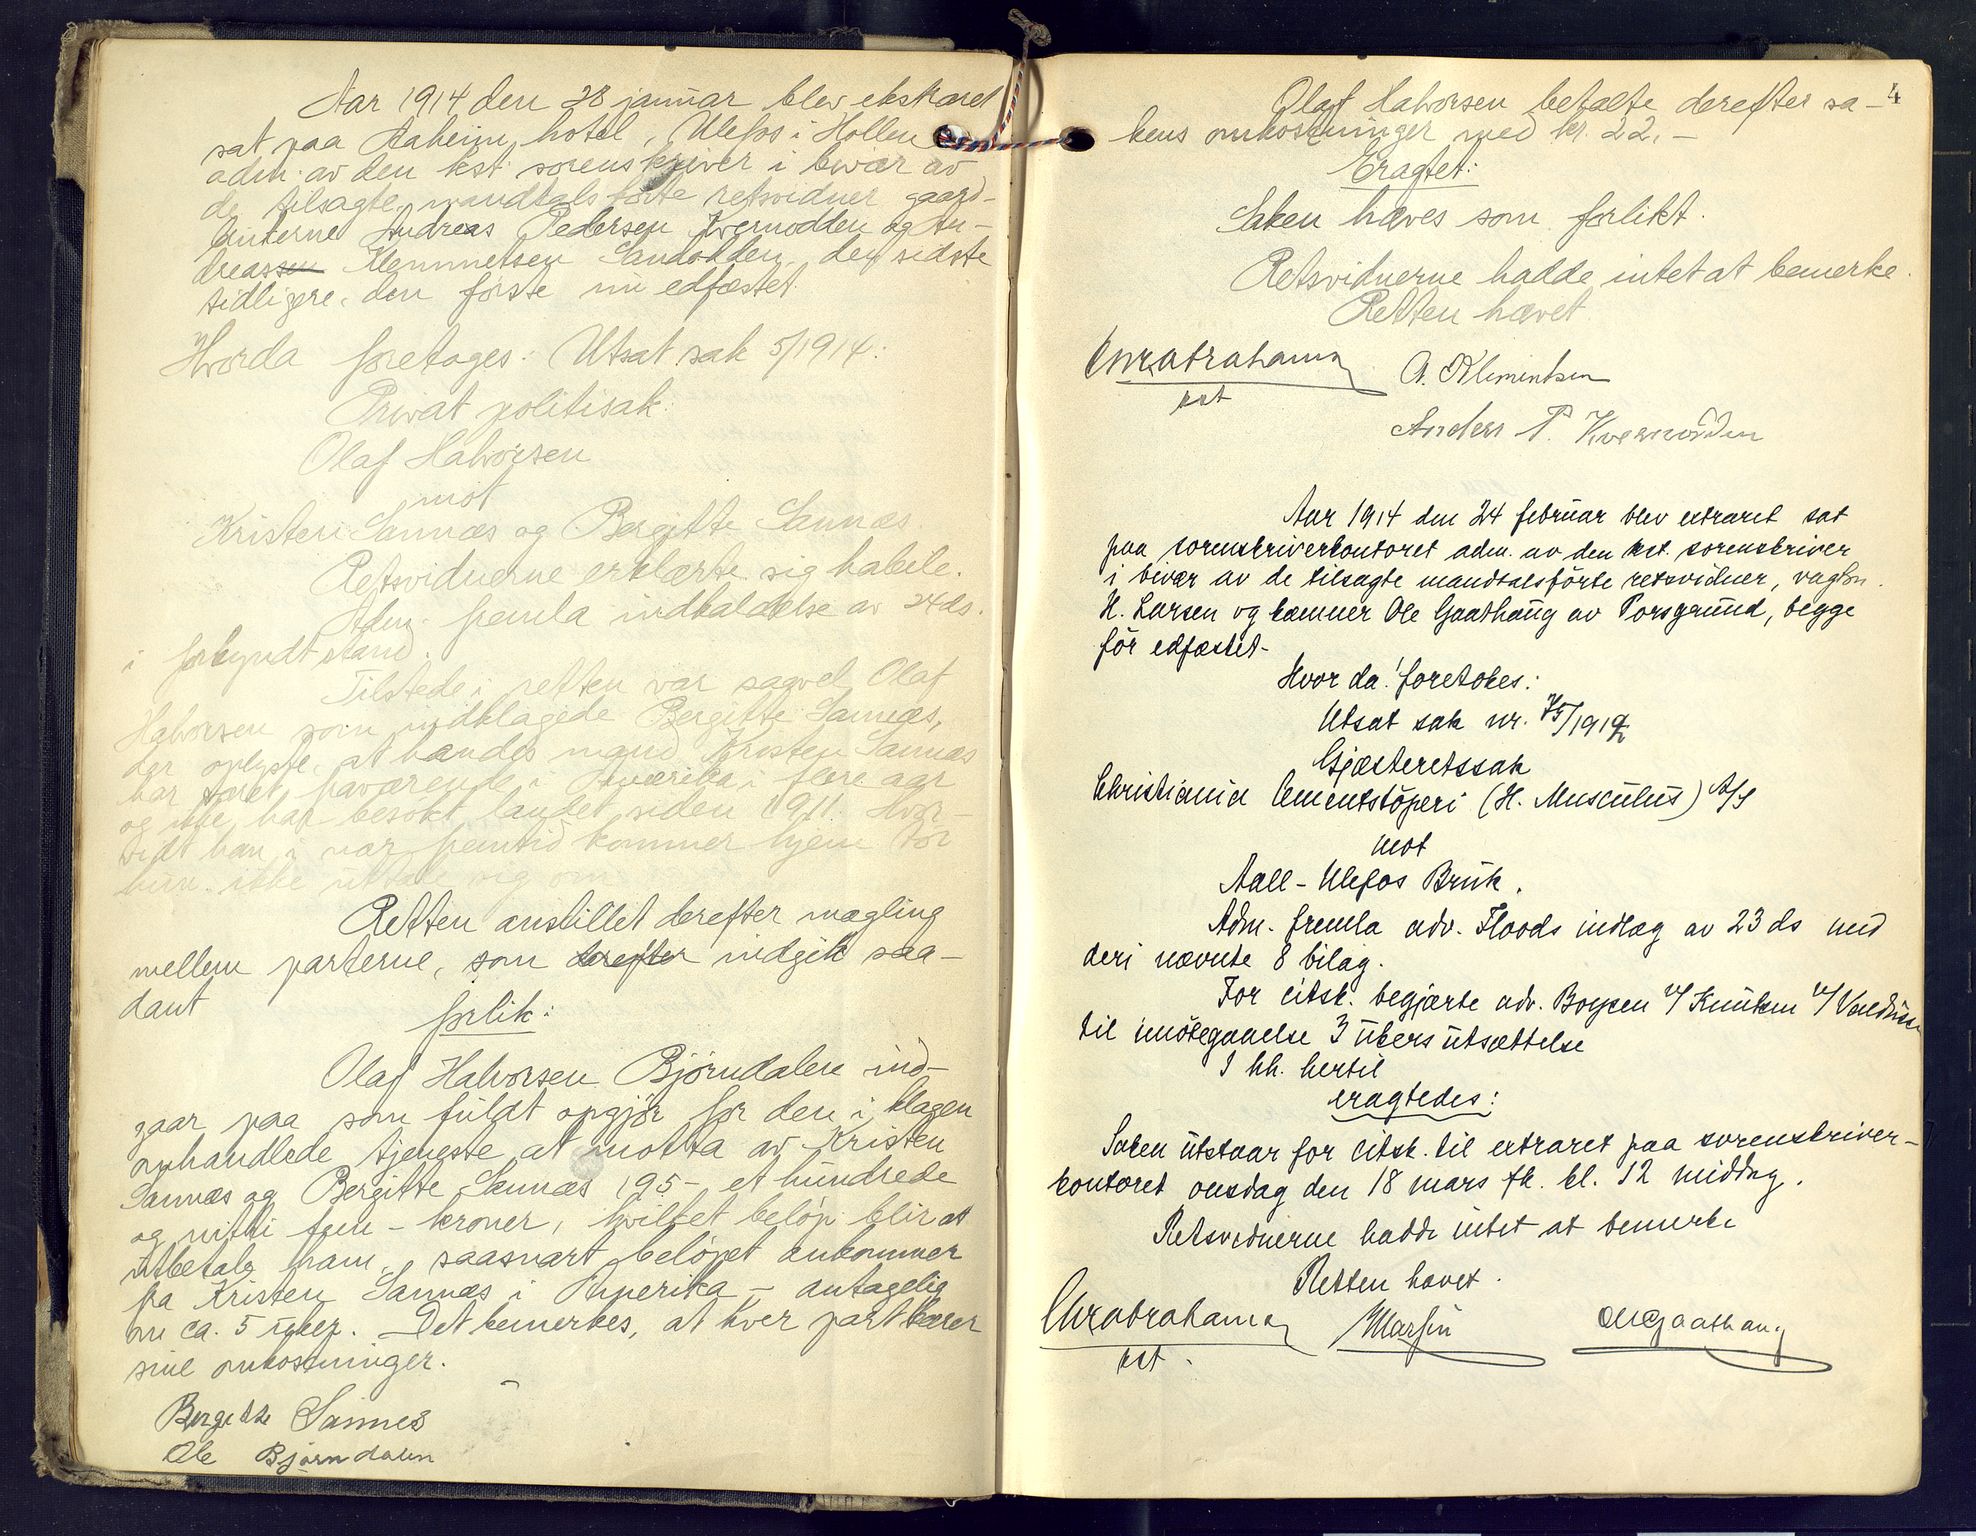 Aar 1914 den 28 januar blev ekstraret
sat paa Aaheim hotel, Ulefos i Hollen
adm. av den kst. sorenskriver i bivær av
de tilsagte mandtalsførte retsvidner gaard-
bruterne Andreas Pedersen Kvernodden og An-
dreassen Klemmetsen Sandodden, den sidste
tidligere, den første nu edfæstet.
Hvorda foretoges: Utsat sak 5/1914:
Privat politisak:
Olaf Halvorsen
mot
Kristen Sannæs og Bergitte Sannæs.
Retsvidnerne erklærte sig habile.
Adm. fremla indkaldelse av 24 ds.
i forkyndt stand.
Tilstede i retten var saavel Olaf
Halvorsen som indklagede Bergitte Sannæs,
der oplyste, at hendes mand Kristen Sannæs
har været fraværende i Amerika i flere aar
og ikke har besøkt landet siden 1911. Hvor-
vidt han i nær fremtid kommer hjem tør
hun ikke uttale sig om.
Retten anstillet derefter mægling
mellem parterne, som derefter indgik saa-
dant
forlik:
Olaf Halvorsen Bjørndalen ind-
gaar paa som fuldt opgjør for den i klagen
omhandlede tjeneste at motta av Kristen
Sannæs og Bergitte Sannæs 195 - et hundrede
og nitti fem - kroner, hvilket beløp blir at
utbetale ham, saasnart beløpet ankommer
fra Kristen Sannæs i Amerika - antagelig
om ca. 5 uker. Det bemerkes, at hver part bærer
sine omkostninger.
Bergitte Sannes
Ole Bjørndalen
4
Olaf Halvorsen betalte derefter sa-
kens omkostninger med kr. 22.-
Eragtet:
Saken hæves som forlikt.
Retsvidnerne hadde intet at bemerke.
Retten hævet
Chr Abrahams
kst
A. Klementsen
Anders P. Kvernodden
Aar 1914 den 24 februar blev extraret sat
paa sorenskriverkontoret adm. av den kst. sorenskriver
i bivær av de tilsagte mandtalsførte retsvidner, vagtm.
H. Larsen og kæmner Ole Gaathaug av Porsgrund, begge
før edfæstet-
Hvorda foretokes:
Utsat sak nr. 75/1912
Gjæsteretssak
Christiania Cementstøperi (H. Musculus) A/S
mot
Aall-Ulefos Bruk.
Adm. fremla adv. Floods indlæg av 23 ds med
deri nævnte 8 bilag.
For citsk. begjærte adv. Boysen v/ Knutsen v/
til imøtegaaelse 3 ukers utsættelse
I hh. hertil
eragtedes:
Saken utstaar for citsk. til extraret paa sorenskriver-
kontoret onsdag den 18 mars fk. kl. 12 middag.
Retsvidnerne hadde intet at bemerke
Retten hævet.
Chr Abrahams
kst.
Ole Gaathaug